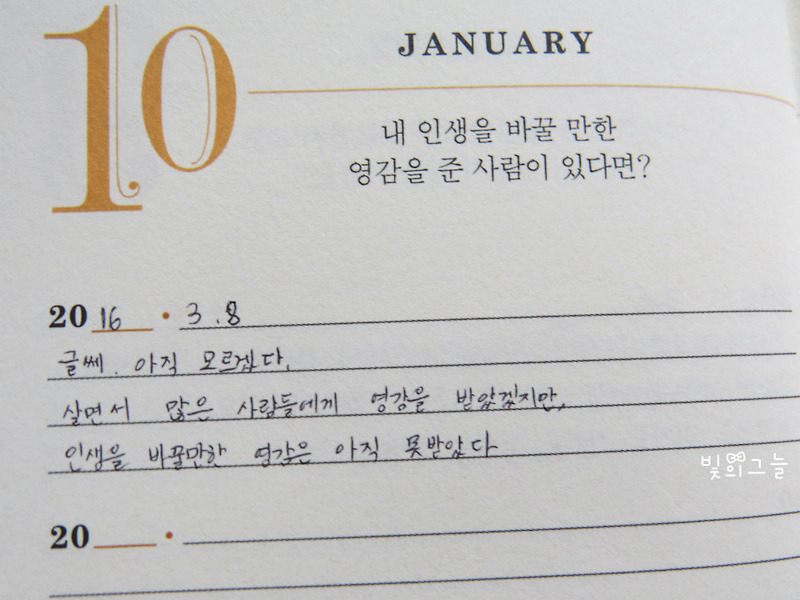 10
JANUARY
내 인생을 바꿀 만한
영감을 준 사람이 있다면?
2016 · 3.8
글쎄. 아직 모르겠다.
살면서 많은 사람들에게 영강을 받았겠지만,
인생을 바꿀만한 영감은 아직 못받았다
빛의그늘
20 ·